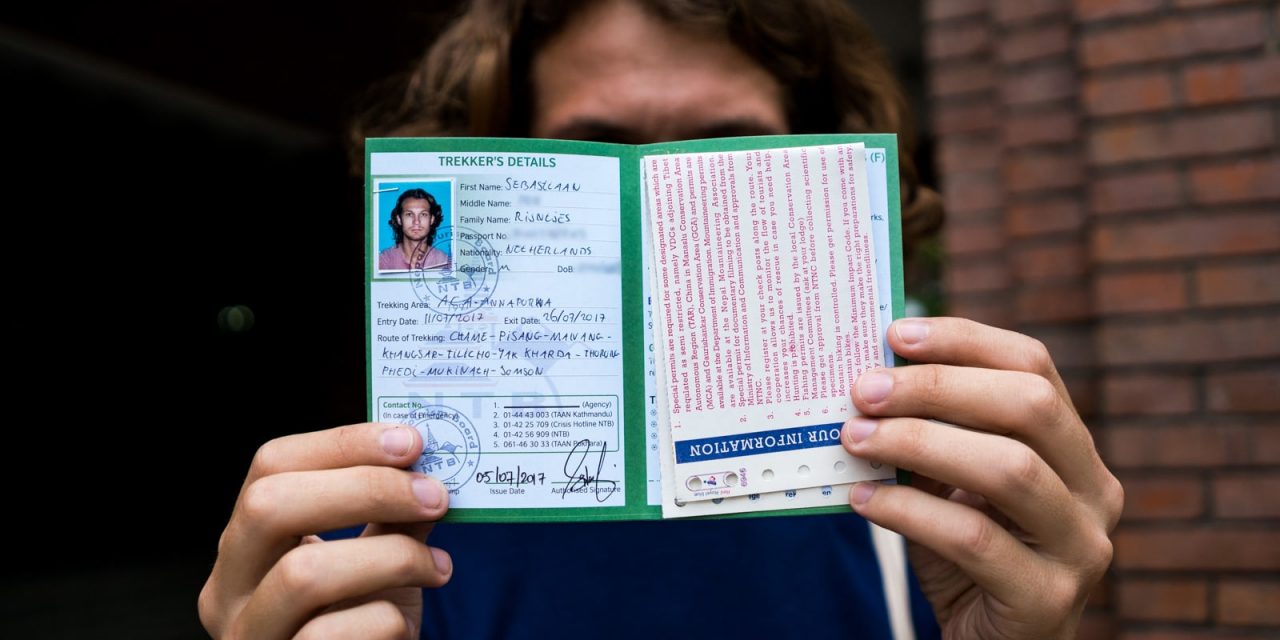 TREKKER'S DETAILS
First Name: SEBASTIAAN
Middle Name:
Family Name: RIJNTJES
Passport No.
Nationality: NETHERLANDS
Gender: M DoB:
Trekking Area: ACA-ANNAPURNA
Entry Date: 11/07/2017 Exit Date: 26/07/2017
Route of Trekking: CHAME-PISANG-MANANG-
KHANGSAR-TILICHO-YAK KHARDA-THORUNG
PHEDI-MUKINATH-JOMSON
Contact No.
(In case of Emergency)
1. (Agency)
2. 01-44 43 003 (TAAN Kathmandu)
3. 01-42 25 709 (Crisis Hotline NTB)
4. 01-42 56 909 (NTB)
5. 061-46 30 33 (TAAN Pokhara)
05/07/2017
Issue Date
Authorised Signature
NTB
NTB
(F)
rks.
YOUR INFORMATION
1. Special permits are required for some designated areas which are
requlated as semi restricted, namely VDCs adjoining Tibet
Autonomous Region (TAR), China in Manaslu Conservation Area
(MCA) and Gaurishankar Conservation Area (GCA) and permits are
available at the Department of Immigration. Mountaineering permits
are available at the Nepal Mountaineering Association.
2. Special permit for documentary filming to be obtained from the
Ministry of Information and Communication and approvals from
NTNC.
3. Please register at your check posts along the route. Your
cooperation allows us to monitor the flow of tourists and
increases your chances of rescue in case you need help.
4. Hunting is prohibited.
5. Fishing permits are issued by the local Conservation Area
Management Committees (ask at your lodge)
6. Please get approval from NTNC before collecting scientific
specimens.
7. Moutain biking is controlled. Please get permission for use of
mountain bikes.
follow the Minimum Impact Code. If you come with an
make sure they make the right preparations for safety,
and environmental friendliness.